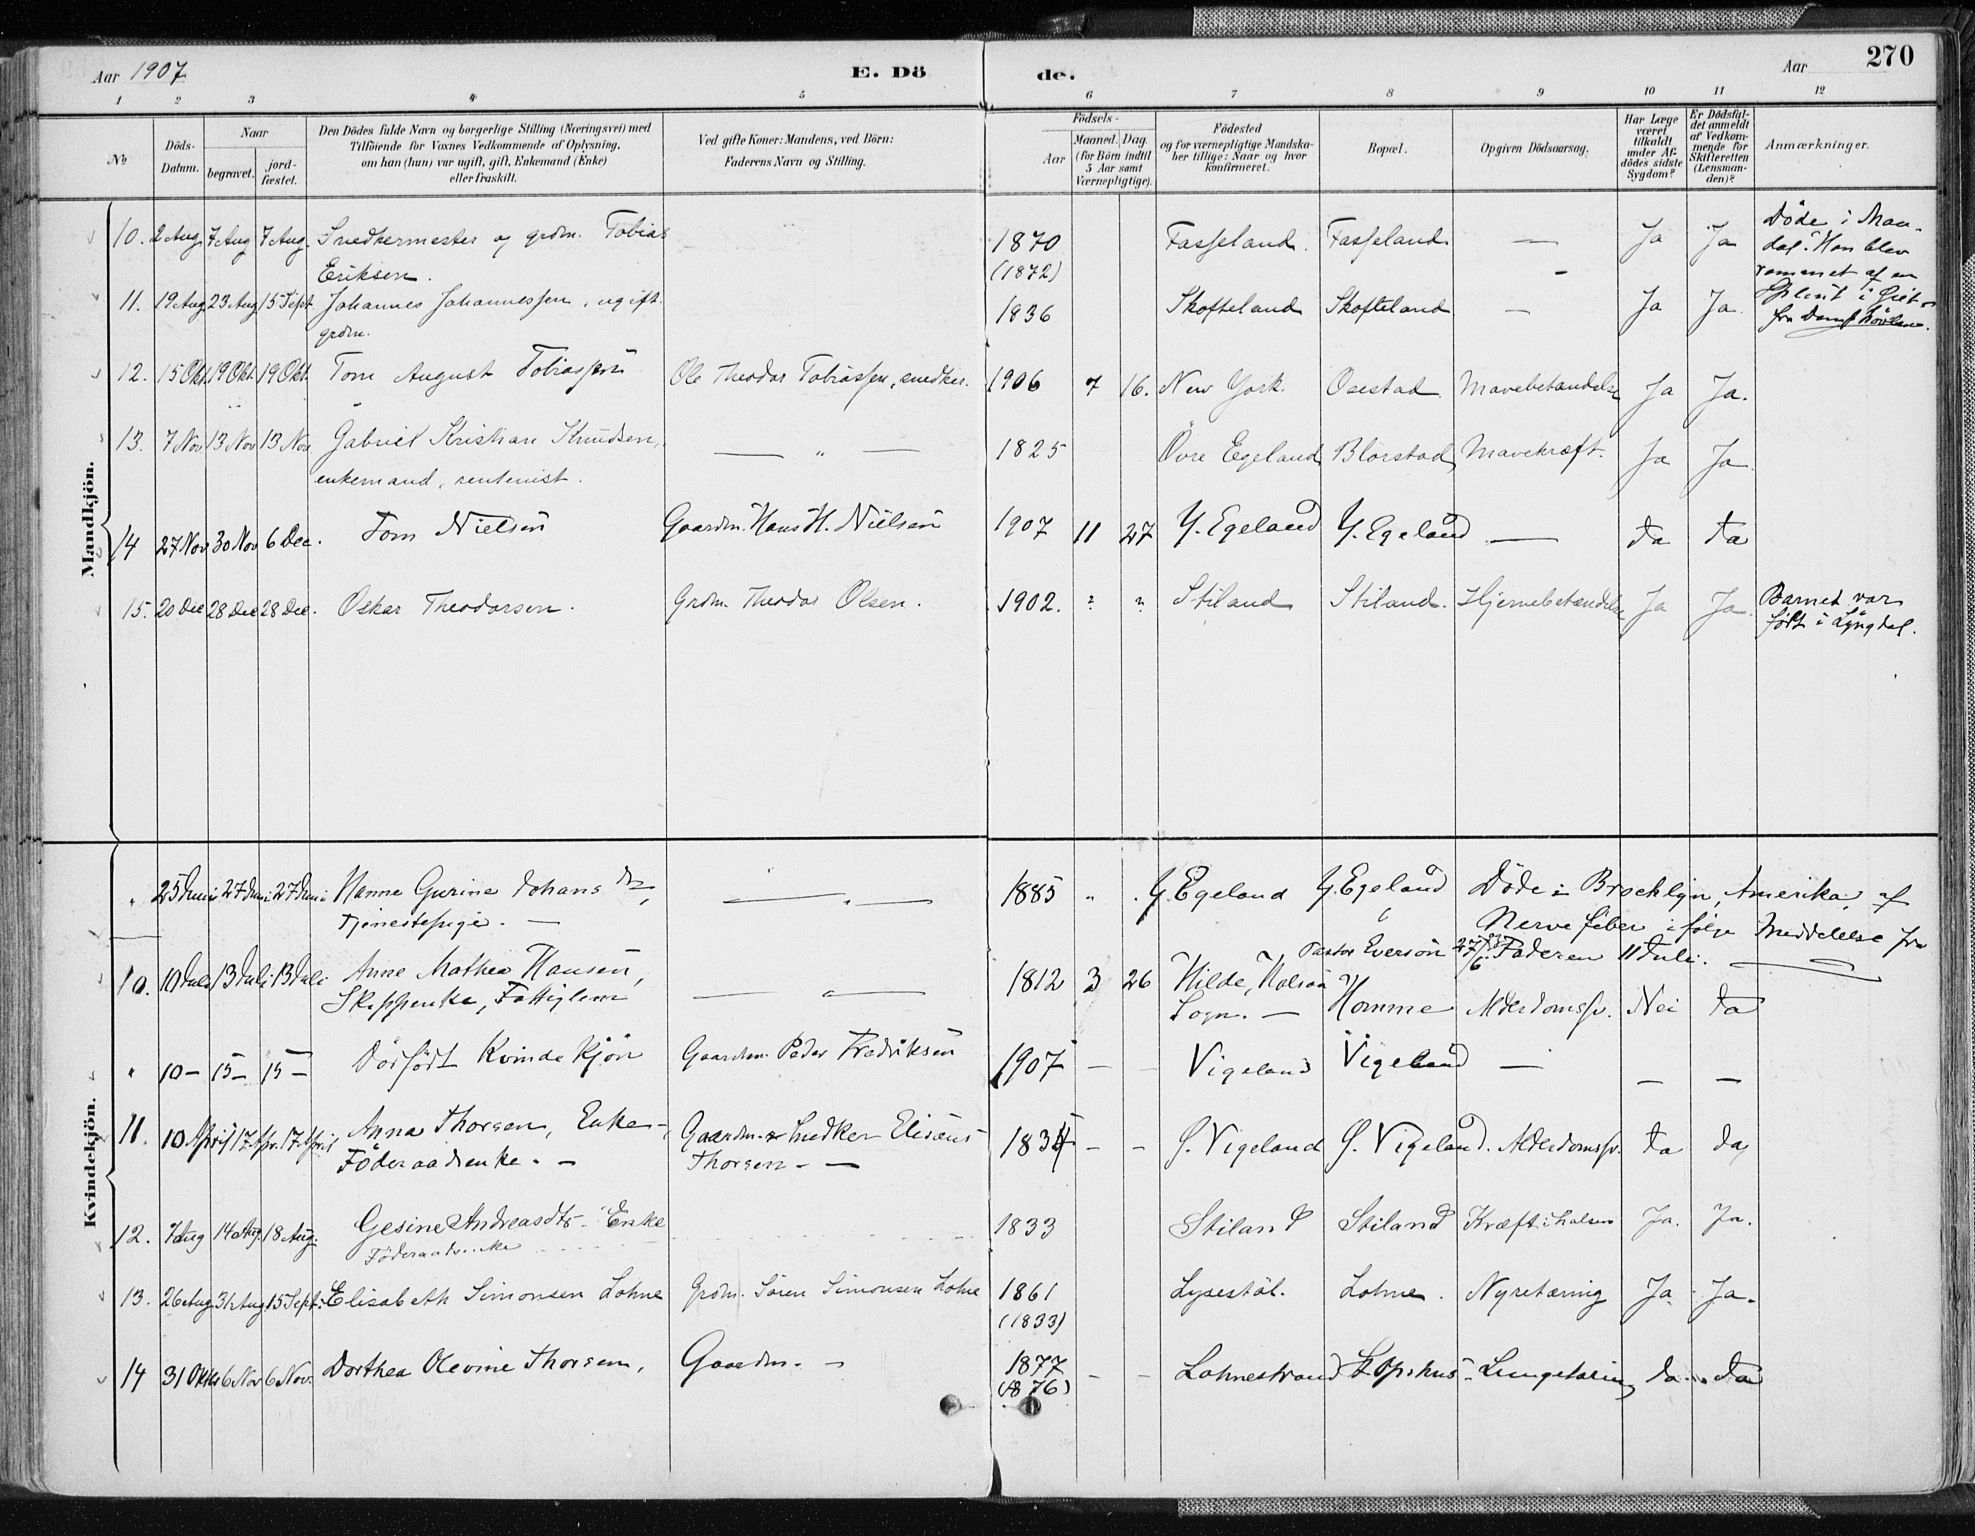 Aar 1907 E. Dö de. Aar 270
1 2 3 4 5 6 7 8 9 10 11 12
№
Döds-Datum.
Naar
begravet.
jord-fæstet.
Den Dödes fulde Navn og borgerlige Stilling (Næringsvei) med
Tilföiende for Voxnes Vedkommende af Oplysning,
om han (hun) var ugift, gift, Enkemand (Enke)
eller fraskilt.
Ved gifte Koner: Mandens, ved Börn:
Faderens Navn og Stilling.
Födsels-
Aar
Maaned. Dag.
(for Börn indtil
5 Aar samt
Værnepligtige).
Födested
og for værnepligtige Mandska-
ber tillige: Naar og hvor
konfirmeret.
Bopæl.
Opgiven Dödsaarsag.
Har Læge
været
tilkaldt
under Af-
dödes sidste
Sygdom?
Er Dödsfal-
det anmeldt
af Vedkom-
mende for
Skifteretten
(Lensman-
den)?
Anmærkninger.
Mandkjön.
10. 2 Aug 7 Aug 7 Aug. Snedkermester og grdm. Tobias 1870 Fasseland. Fasseland — Ja Ja Döde i Man-
dal. Han blev
Eriksen. (1872) — rammet af en
11. 19 Aug 23 Aug 15 Sept Johannes Johannessen, ugift 1836 Skofteland Skofteland — Ja Ja Splint i
grdm. fra
12. 15 Okt 19 Okt. 19 Okt. Tom August Tobiassen Ole Theodor Tobiassen, snedker. 1906 7 16. New York. Osestad Mavebetændelse Ja Ja.
13. 7 Nov 13 Nov 13 Nov Gabriel Kristian Knudsen, — „ — 1825 Övre Egeland Blörstad Mavekræft. Ja Ja
enkemand, rentenist.
14 27 Nov 30 Nov 6 Dec. Tom Nielsen Gaardm. Hans H. Nielsen 1907 11 27 Y. Egeland Y. Egeland — Ja Ja
15. 20 Dec 28 Dec 28 Dec. Oskar Theodorsen. Grdm. Theodor Olsen. 1902. ? ? Stiland Stiland. Hjernebetændelse Ja Ja Barnet var
födt i Lyngdal.
Kvindekjön.
„ 25 Juni 27 Juni 27 Juni Hanne Gurine Johans dr, — „ — 1885 „ „ Y. Egeland Y. Egeland Döde in Brocklyn, Amerika, af
Tjenestepige. — Nervefeber ifølge Meddelelse fra
Pastor Everson 27/6 Faderen 11 Juli. —
10. 10 Juli 13 Juli 13 Juli Anne Mathea Hansen, — „ — 1812 3 26 Hilde, Halsaa
Skippenke, Fattiglem Sogn. — Homme Alderdomssv. Nei Ja
„ 10 — 15 — 15 — Dödfödt Kvindekjön Gaardm. Peder Fredriksen 1907 — — Vigeland Vigeland — — —
11. 10 April 17 Apr. 17 April Anna Thorsen, Enke —, Gaardm. & Snedker Elisæus 1834 — — S. Vigeland S. Vigeland. Alderdomssv. Ja Ja
Föderaadsenke. — Thorsen — —
12. 7 Aug 14 Aug 18 Aug. Gesine Andreasdtr. Enke 1833 Stiland Stiland Kræft i halsen Ja. Ja.
13. 26 Aug 31 Aug 15 Sept. Elisabeth Simonsen Lohne Grdm. Sören Simonsen Lohne 1861 Lysestöl. Lohne. Nyretæring Ja Ja.
(1833)
14 31 Oktb 6 Nov 6 Nov. Dorthea Olevine Thorsen, Gaardm. — 1877 — — Lohnestrand Lungetæring Ja Ja
(1876)